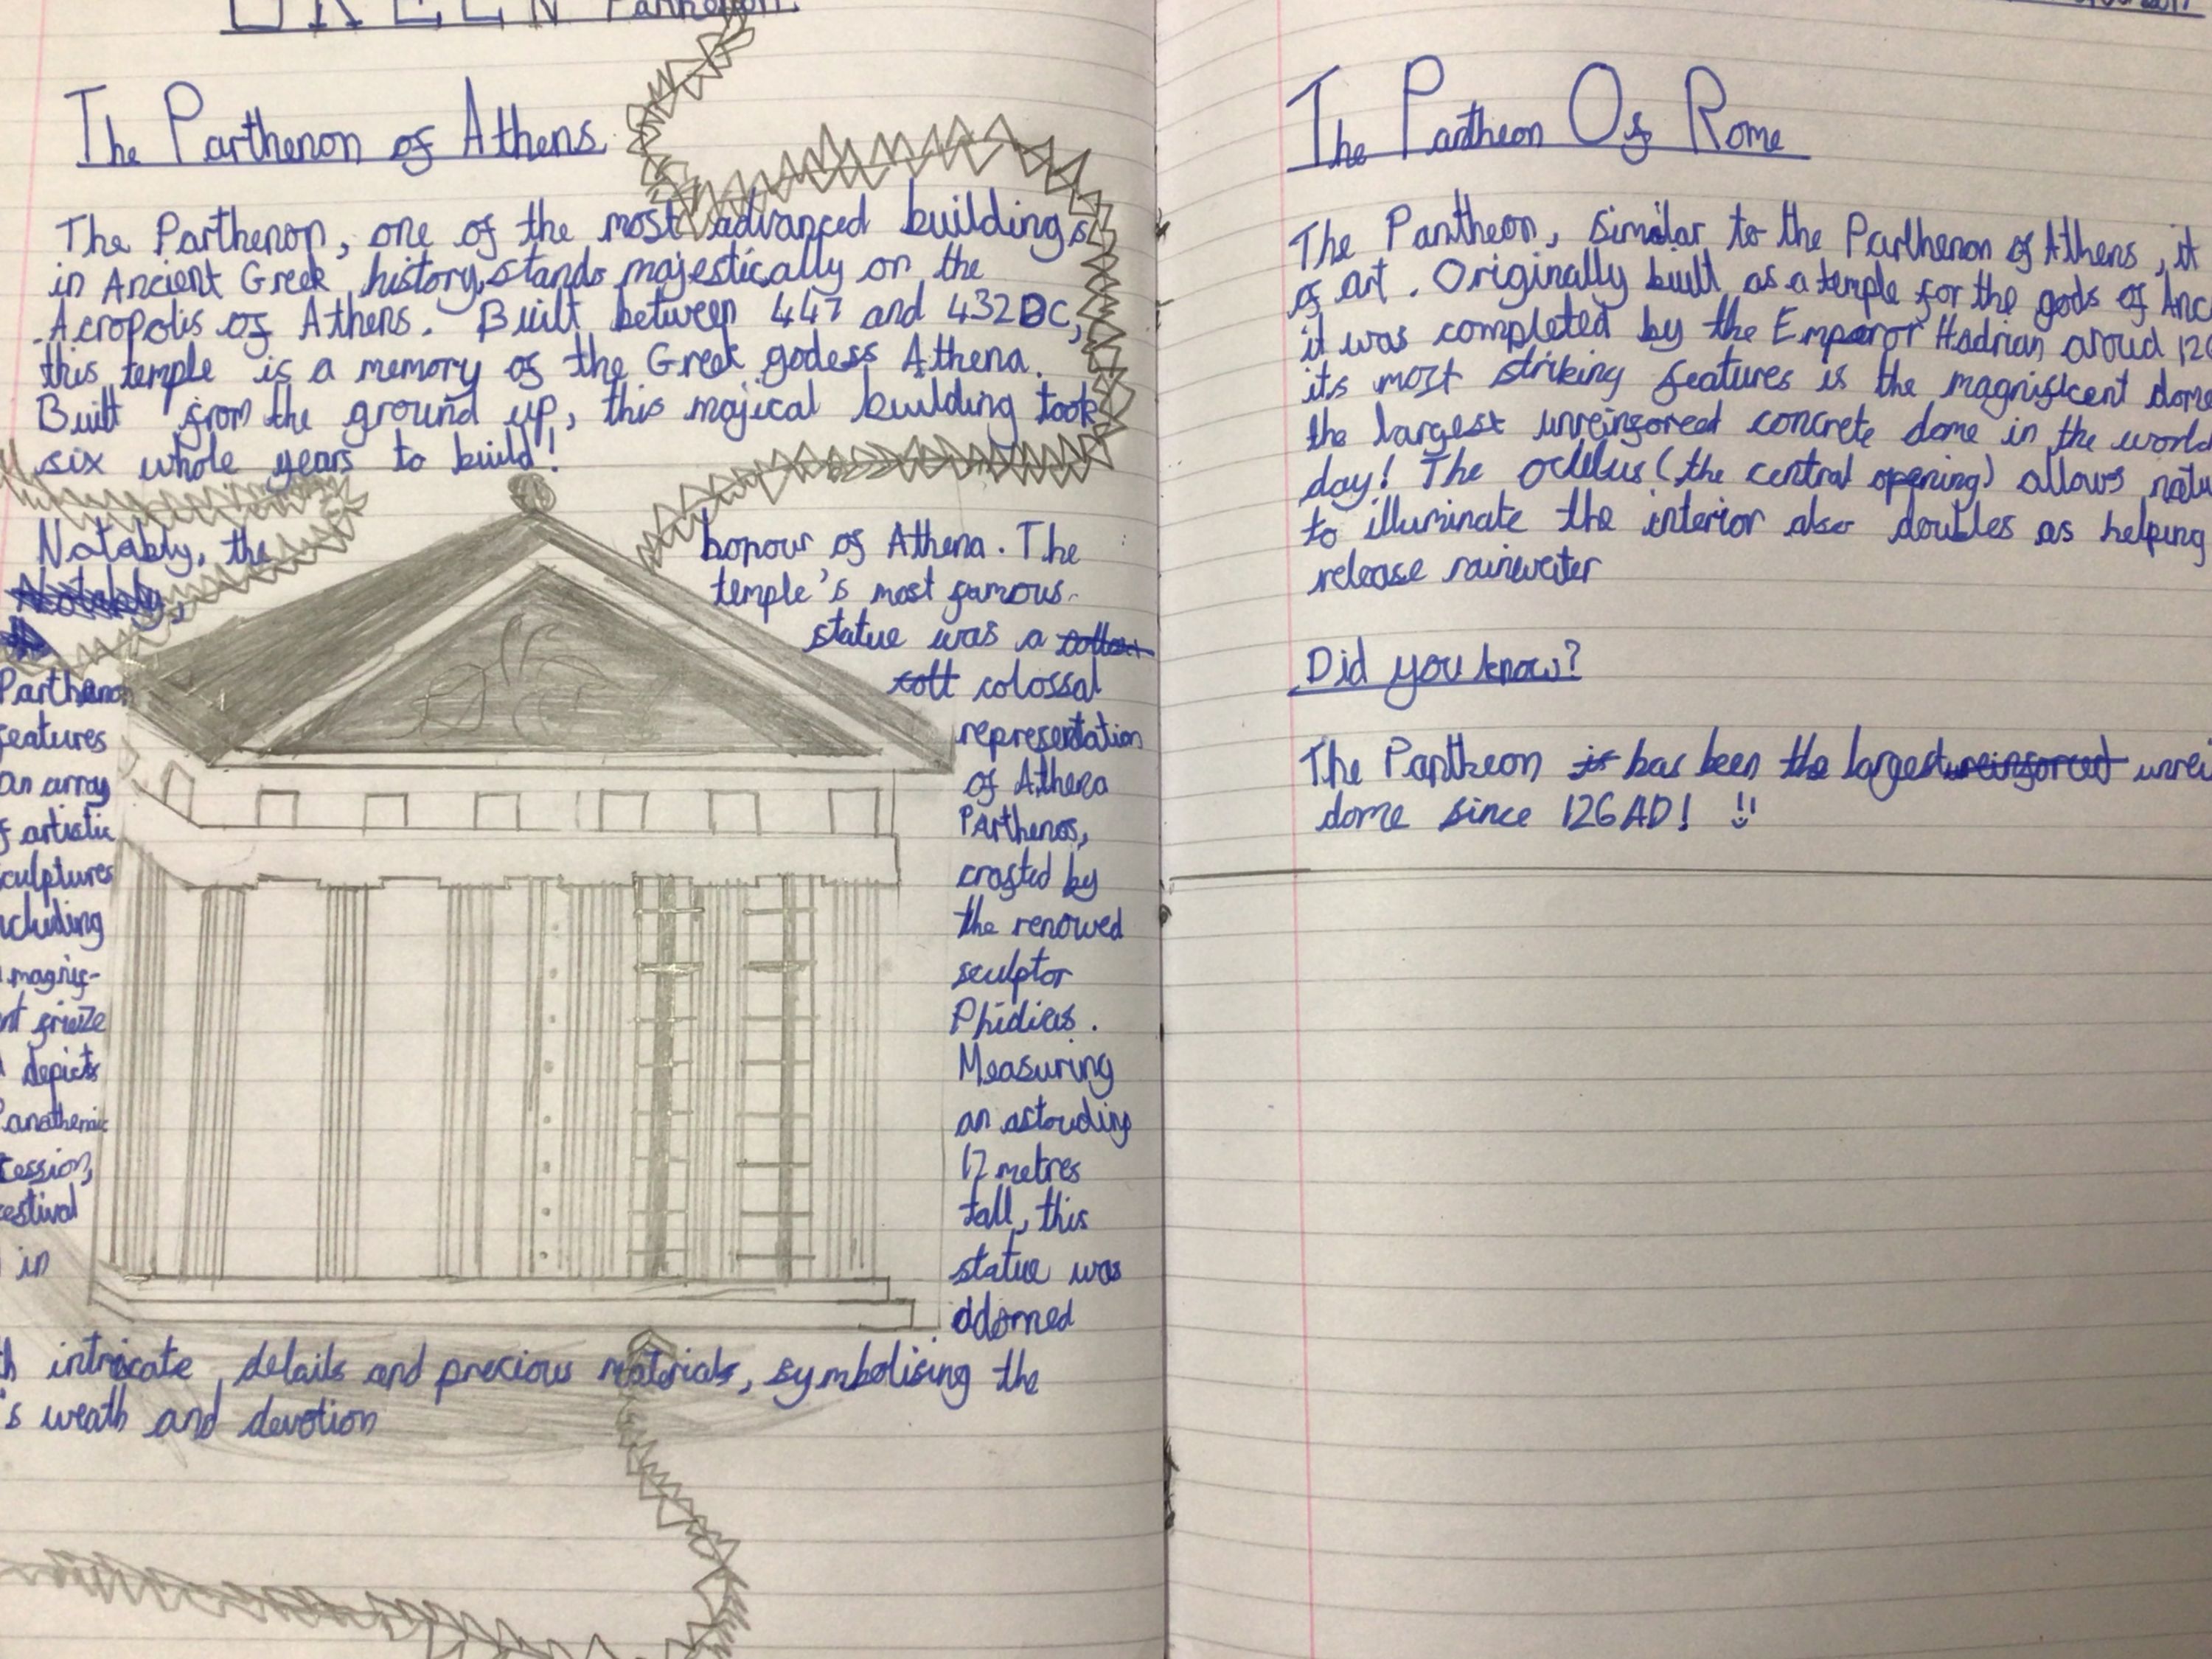 GREEK Parthenon.
The Parthenon of Athens
The Parthenon, one of the most advanced buildings
in Ancient Greek history, stands majestically on the
Acropolis of Athens. Built between 447 and 432BC,
this temple is a memory of the Greek godess Athena.
Built from the ground up, this majical building took
six whole years to build!
Notably, the
Notably,
Parthenon
features
an array
f artistic
culptures
ncluding
magnif-
nt frieze
depicts
Panathenaic
cession,
estival
in
honour of Athena. The
temple's most famous
statue was a
cott colossal
representation
of Athena
Parthenos,
crafted by
the renowed
sculptor
Phidias.
Measuring
an astouding
12 metres
tall, this
statue was
adorned
h intricate details and precious materials, symbolising the
's weath and devotion
The Pantheon Of Rome
The Pantheon, similar to the Parthenon of Athens, it
of art. Originally built as a temple for the gods of Anc
it was completed by the Emperor Hadrian aroud 12
its most striking features is the magnificent dome
the largest unreinforced concrete dome in the world
day! The oculus (the central opening) allows natu
to illuminate the interior also doubles as helping
release rainwater
Did you know?
The Pantheon is has been the largest unreinforced unrei
dome since 126AD!